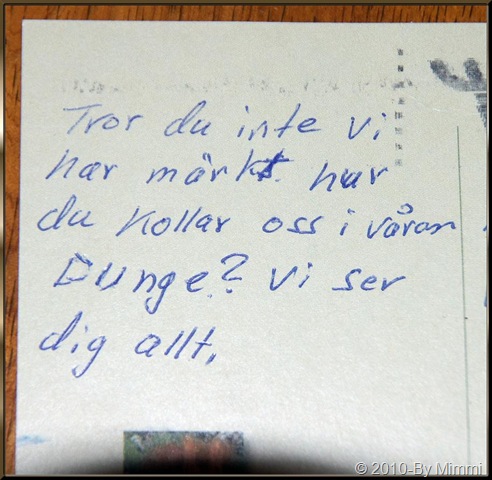 Tror du inte vi
har märkt hur
du kollar oss i våran
Dunge? Vi ser
dig allt.
© 2010-By Mimmi